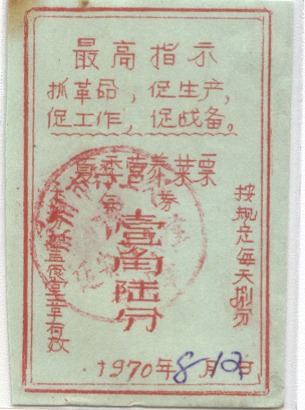 最高指示
抓革命,促生产,
促工作,促战备。
夏季营养菜票
壹角陆分
按规定每天捌分
食堂章有效
1970年8月12日